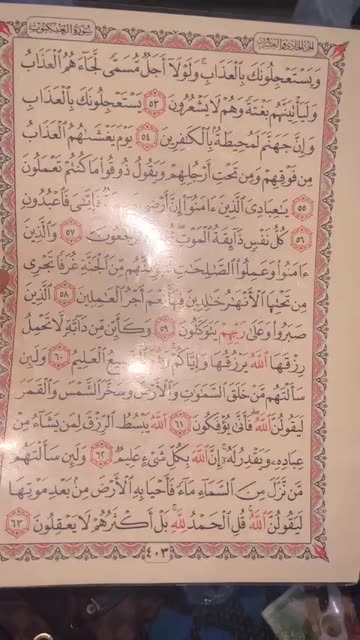 الجزء الحادي والعشرون سورة العنكبوت
وَيَسْتَعْجِلُونَكَ بِالْعَذَابِ وَلَوْلَا أَجَلٌ مُسَمًّى لَجَاءَهُمُ الْعَذَابُ
وَلَيَأْتِيَنَّهُم بَغْتَةً وَهُمْ لَا يَشْعُرُونَ ٥٣ يَسْتَعْجِلُونَكَ بِالْعَذَابِ
وَإِنَّ جَهَنَّمَ لَمُحِيطَةٌ بِالْكَافِرِينَ ٥٤ يَوْمَ يَغْشَاهُمُ الْعَذَابُ
مِن فَوْقِهِمْ وَمِن تَحْتِ أَرْجُلِهِمْ وَيَقُولُ ذُوقُوا مَا كُنتُمْ تَعْمَلُونَ
٥٥ يَاعِبَادِيَ الَّذِينَ ءَامَنُوا إِنَّ أَرْضِي فَإِيَّايَ فَاعْبُدُونِ
٥٦ كُلُّ نَفْسٍ ذَائِقَةُ الْمَوْتِ تُرْجَعُونَ ٥٧ وَالَّذِينَ
ءَامَنُوا وَعَمِلُوا الصَّالِحَاتِ مِّنَ الْجَنَّةِ غُرَفًا تَجْرِي
مِن تَحْتِهَا الْأَنْهَارُ خَالِدِينَ فِيهَا نِعْمَ أَجْرُ الْعَامِلِينَ ٥٨ الَّذِينَ
صَبَرُوا وَعَلَىٰ رَبِّهِمْ يَتَوَكَّلُونَ ٥٩ وَكَأَيِّن مِّن دَابَّةٍ لَّا تَحْمِلُ
رِزْقَهَا اللَّهُ يَرْزُقُهَا وَإِيَّاكُمْ السَّمِيعُ الْعَلِيمُ ٦٠ وَلَئِن
سَأَلْتَهُم مَّنْ خَلَقَ السَّمَاوَاتِ وَالْأَرْضَ وَسَخَّرَ الشَّمْسَ وَالْقَمَرَ
لَيَقُولُنَّ اللَّهُ فَأَنَّىٰ يُؤْفَكُونَ ٦١ اللَّهُ يَبْسُطُ الرِّزْقَ لِمَن يَشَاءُ مِنْ
عِبَادِهِ وَيَقْدِرُ لَهُ إِنَّ اللَّهَ بِكُلِّ شَيْءٍ عَلِيمٌ ٦٢ وَلَئِن سَأَلْتَهُم
مَّن نَّزَّلَ مِنَ السَّمَاءِ مَاءً فَأَحْيَا بِهِ الْأَرْضَ مِن بَعْدِ مَوْتِهَا
لَيَقُولُنَّ اللَّهُ قُلِ الْحَمْدُ لِلَّهِ بَلْ أَكْثَرُهُمْ لَا يَعْقِلُونَ ٦٣
٤٠٣